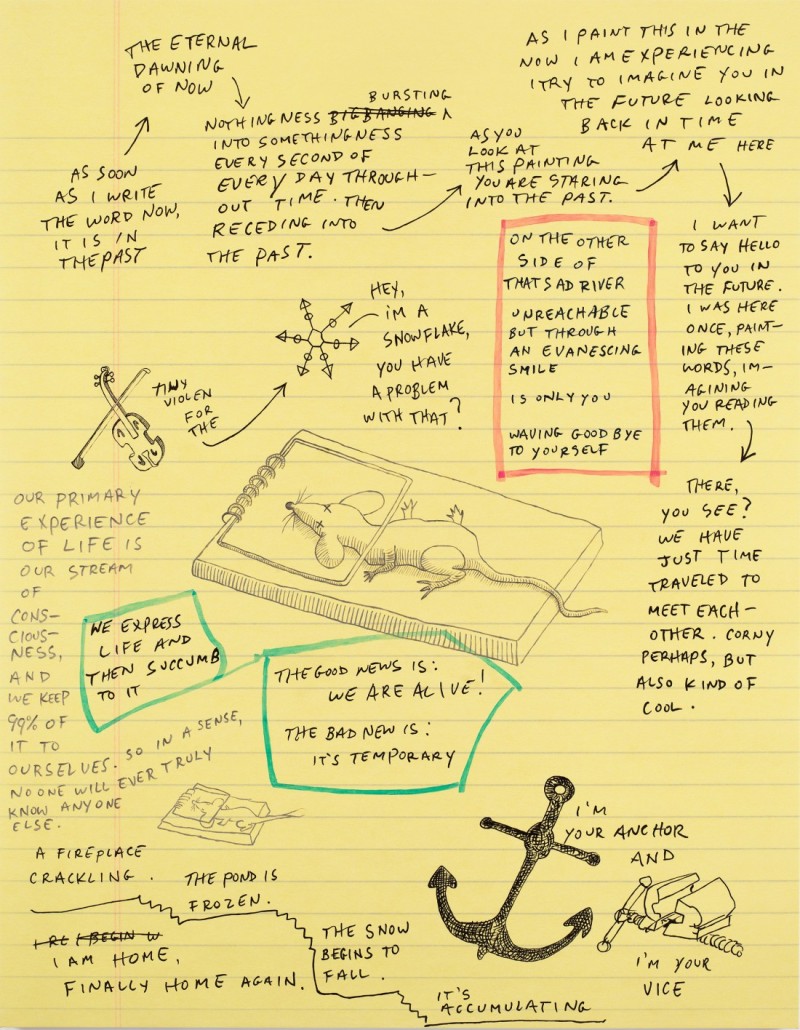 AS SOON
AS I WRITE
THE WORD NOW,
IT IS IN
THE PAST
THE ETERNAL
DAWNING
OF NOW
BURSTING
NOTHINGNESS BIGBANGING ∧
INTO SOMETHINGNESS
EVERY SECOND OF
EVERY DAY THROUGH-
OUT TIME. THEN
RECEDING INTO
THE PAST.
AS YOU
LOOK AT
THIS PAINTING
YOU ARE STARING
INTO THE PAST.
AS I PAINT THIS IN THE
NOW I AM EXPERIENCING
I TRY TO IMAGINE YOU IN
THE FUTURE LOOKING
BACK IN TIME
AT ME HERE
I WANT
TO SAY HELLO
TO YOU IN
THE FUTURE.
I WAS HERE
ONCE, PAINT-
ING THESE
WORDS, IM-
AGINING
YOU READING
THEM.
THERE,
YOU SEE?
WE HAVE
JUST TIME
TRAVELED TO
MEET EACH-
OTHER. CORNY
PERHAPS, BUT
ALSO KIND OF
COOL.
ON THE OTHER
SIDE OF
THAT SAD RIVER
UNREACHABLE
BUT THROUGH
AN EVANESCING
SMILE
IS ONLY YOU
WAVING GOODBYE
TO YOURSELF
TINY
VIOLEN
FOR
THE
HEY,
I'M A
SNOWFLAKE,
YOU HAVE
A PROBLEM
WITH THAT?
OUR PRIMARY
EXPERIENCE
OF LIFE IS
OUR STREAM
OF
CONS-
CIOUS-
NESS,
AND
WE KEEP
99% OF
IT TO
OURSELVES. SO IN A SENSE,
NO ONE WILL EVER TRULY
KNOW ANYONE
ELSE.
WE EXPRESS
LIFE AND
THEN SUCCUMB
TO IT
THE GOOD NEWS IS:
WE ARE ALIVE!
THE BAD NEW IS:
IT'S TEMPORARY
A FIREPLACE
CRACKLING.
THE POND IS
FROZEN.
I BEGIN W
I AM HOME,
FINALLY HOME AGAIN.
THE SNOW
BEGINS TO
FALL.
IT'S
ACCUMULATING
I'M
YOUR ANCHOR
AND
I'M YOUR
VICE